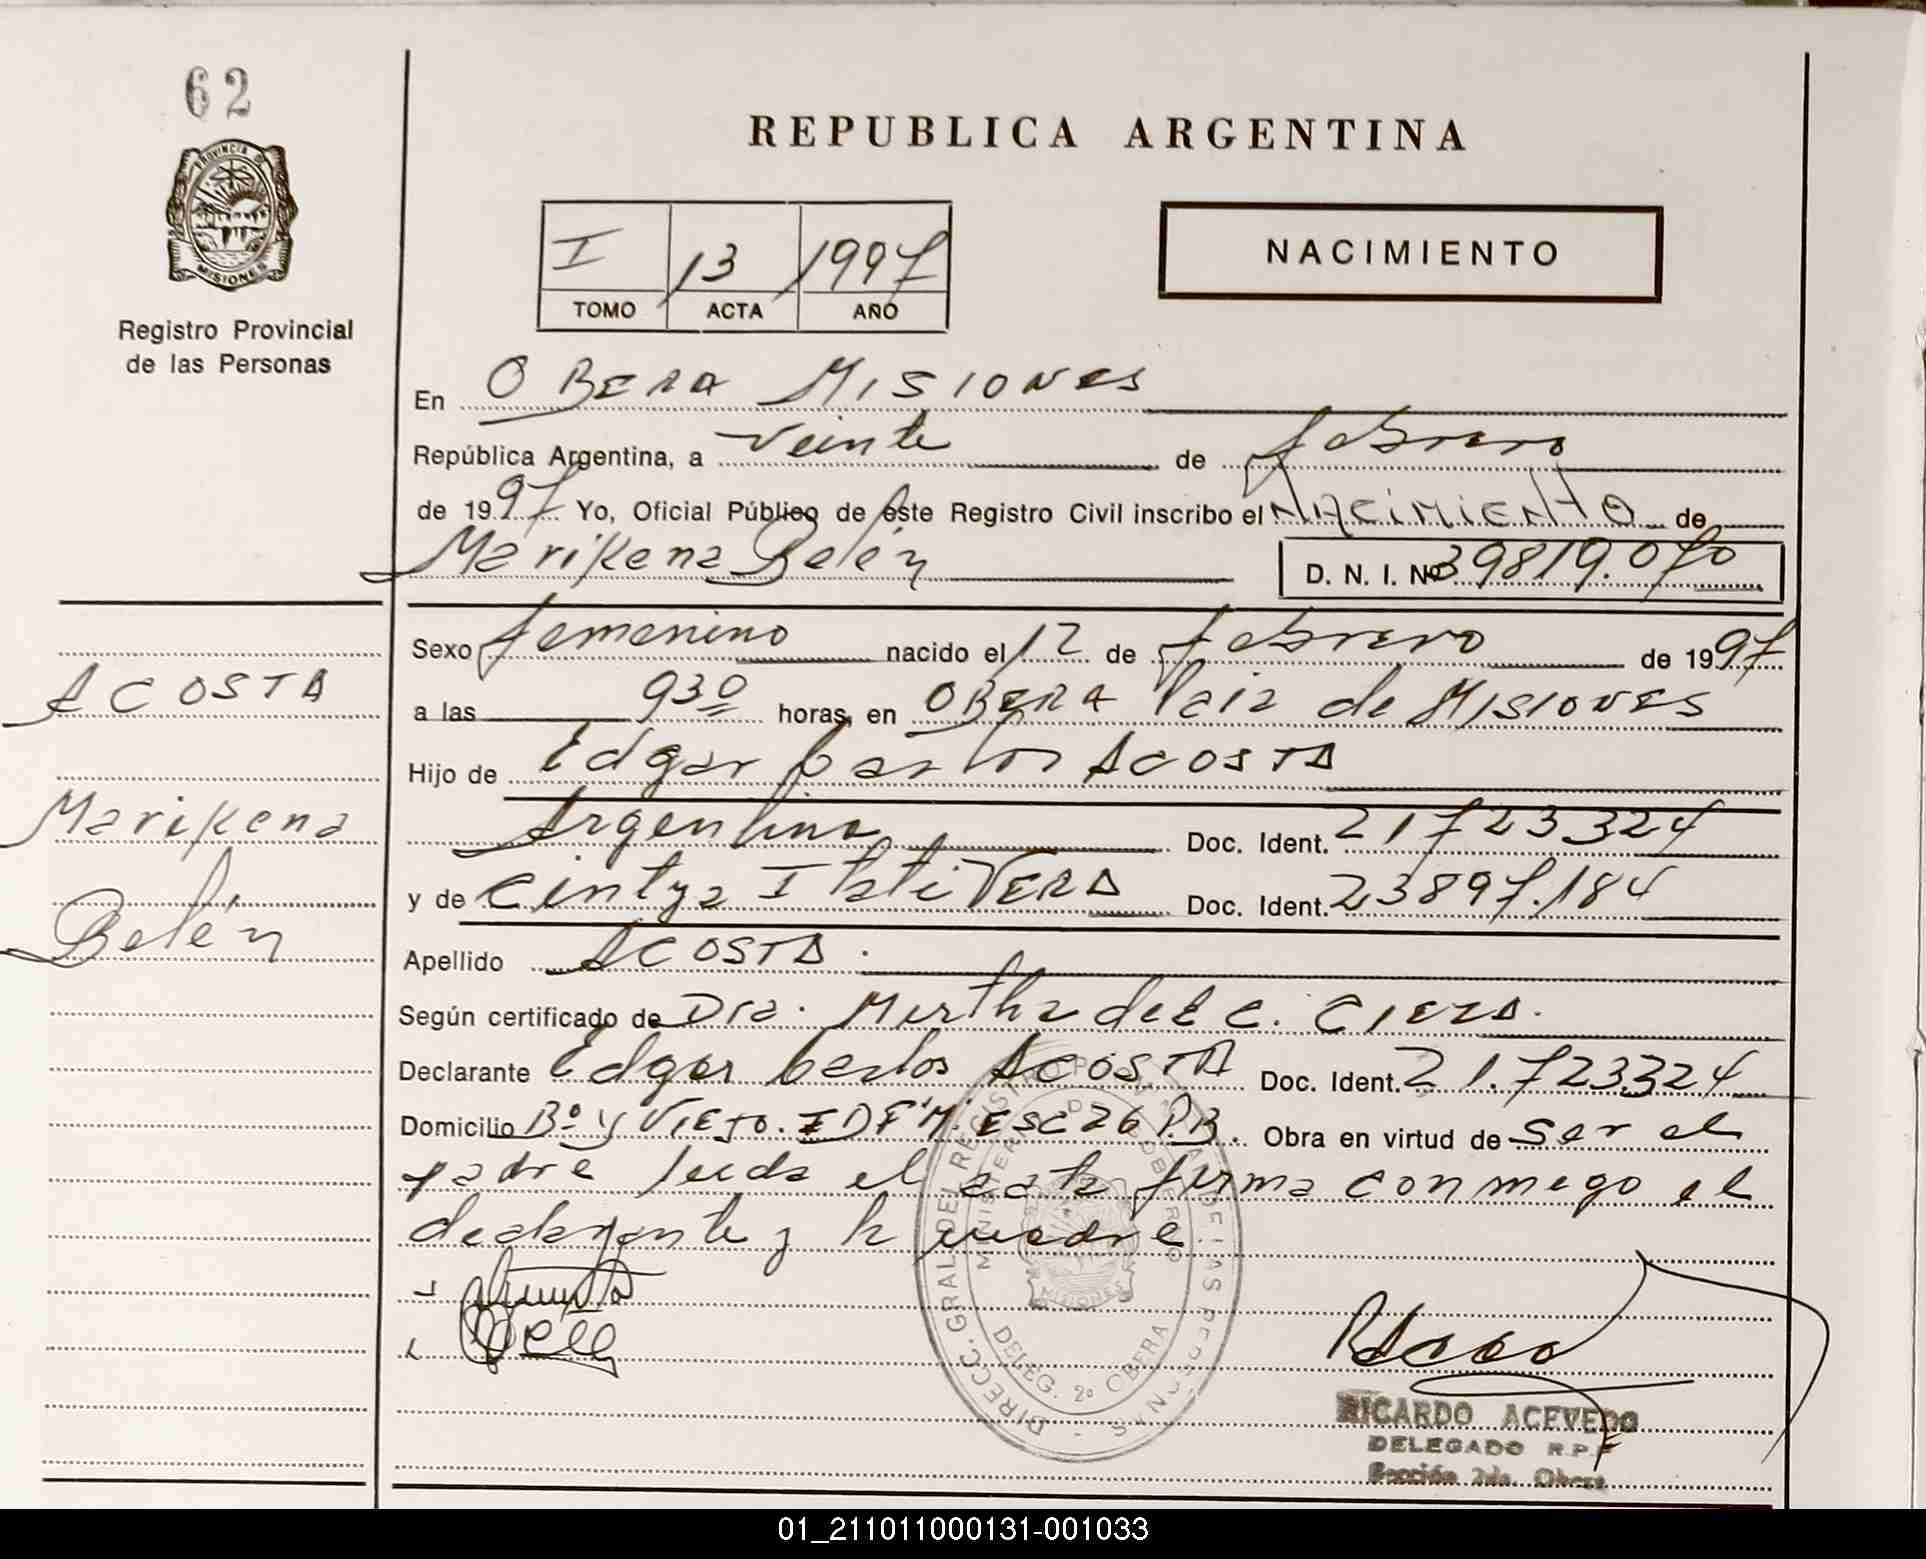 62
PROVINCIA D
MISIONES
Registro Provincial
de las Personas
REPUBLICA ARGENTINA
I 13 1997
TOMO ACTA AÑO
NACIMIENTO
En OBERA MISIONES
República Argentina, a veinte de febrero
de 1997 Yo, Oficial Público de este Registro Civil inscribo el NACIMIENTO de
Marikena Belén D. N. I. Nº 39819.070
Sexo femenino nacido el 12 de febrero de 1997
a las 930 horas, en OBERA Pcia de MISIONES
Hijo de Edgar Carlos ACOSTA
Argentino Doc. Ident. 21723324
y de Cintya Itati VERA Doc. Ident. 23897.184
Apellido ACOSTA.
Según certificado de Dra. Mirtha del C. CIEZA.
Declarante Edgar Carlos ACOSTA Doc. Ident. 21.723324
Domicilio Bº Y VIEJO. "M" ESC 26 P.B. Obra en virtud de ser el
padre leida el acta firma conmigo el
declarante y la madre
ACOSTA
Marikena
Belén
DIRECC. GRAL. DEL REGISTRO DE LAS PERSONAS
MINISTERIO DE GOBIERNO
MISIONES
DELEG. 2º OBERA
RICARDO ACEVEDO
DELEGADO R.P.
Sección 2da. Obera
01_211011000131-001033